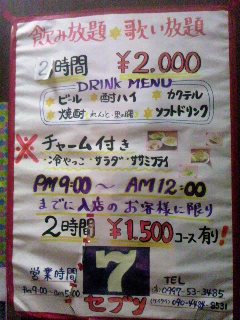 飲み放題 歌い放題
2時間 ¥2.000
DRINK MENU
ビール 酎ハイ カクテル
焼酎 れんと・里の曙 ソフトドリンク
※ チャーム付き
・冷やっこ・サラダ・ササミフライ
PM9:00～AM12:00
までに入店のお客様に限り
2時間 ¥1.500 コース有り!
営業時間
PM9:00~am5:00
7
セブン
TEL
0997-53-3485